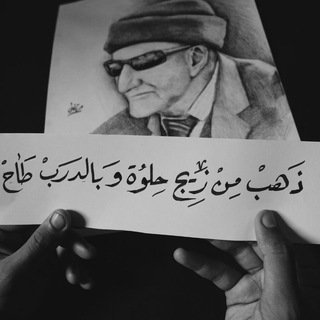 ذَهبْ مِنْ زِيِج حِلوُة وَ بالدرَبْ طَاحْ